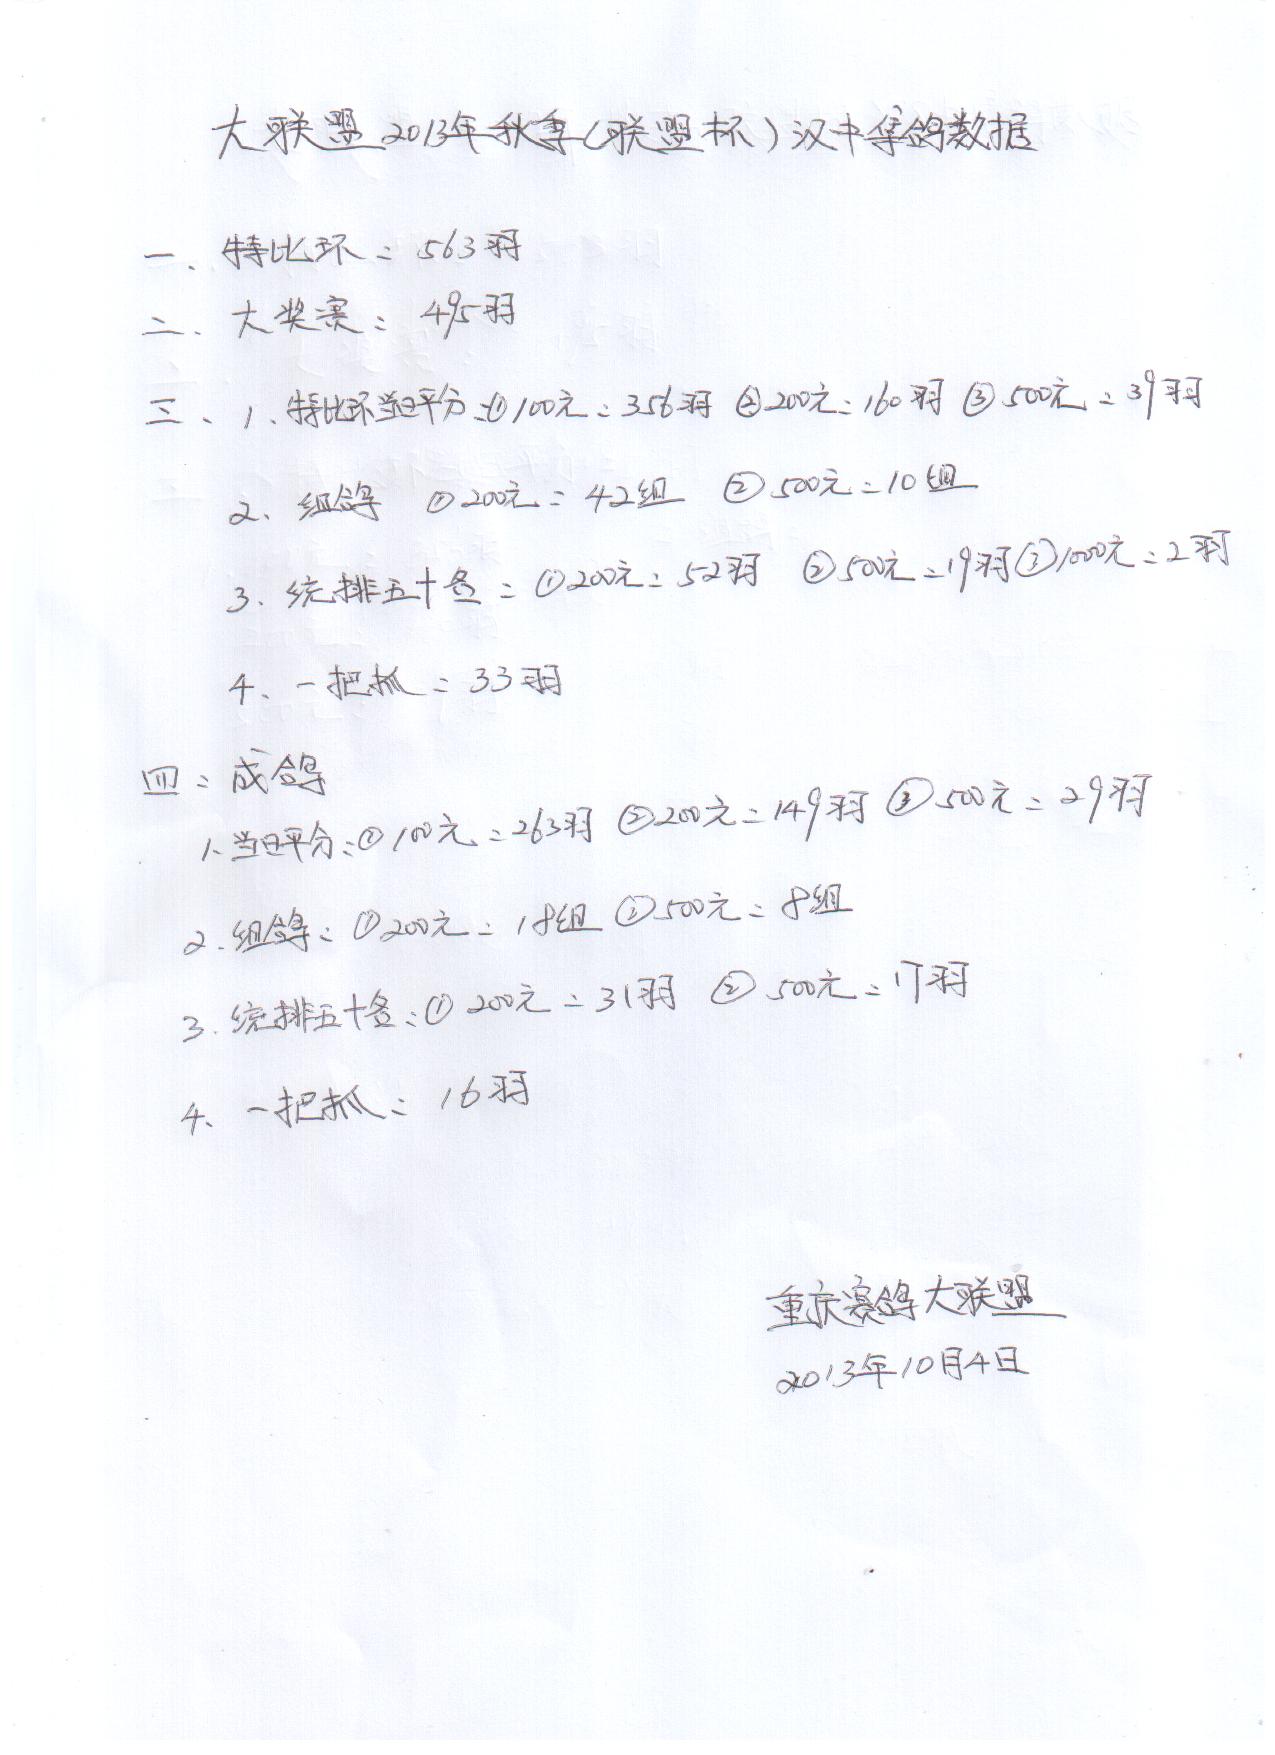 大联盟2013年秋季(联盟杯)汉中集鸽数据
一、特比环: 563羽
二、大奖赛: 495羽
三、1、特比环当日平分:①100元:356羽 ②200元:160羽 ③500元:39羽
2、组鸽 ①200元:42组 ②500元:10组
3、统排五十名:①200元:52羽 ②500元:19羽③1000元:2羽
4、一把抓:33羽
四:成鸽
1、当日平分:①100元:263羽 ②200元:149羽 ③500元:29羽
2、组鸽:①200元:18组 ②500元:8组
3、统排五十名:①200元:31羽 ②500元:17羽
4、一把抓:16羽
重庆赛鸽大联盟
2013年10月4日